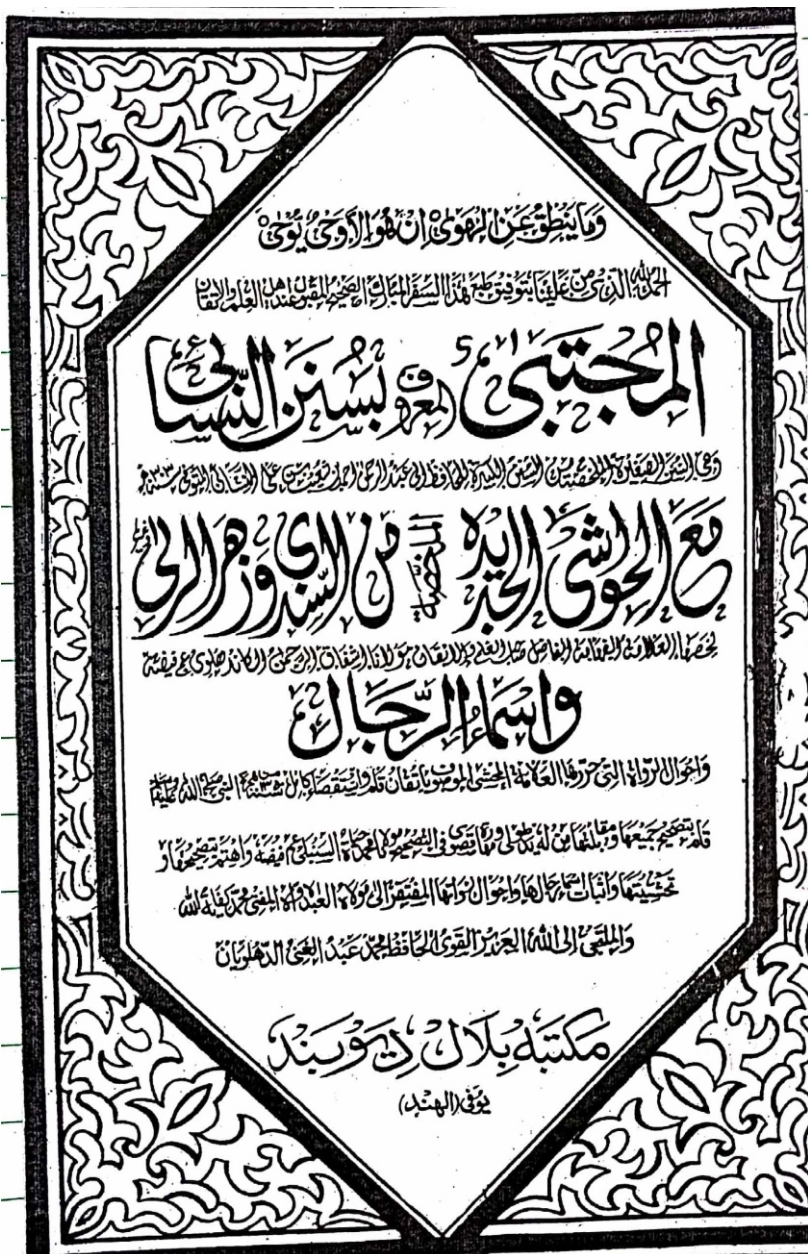 وَمَا يَنْطِقُ عَنِ الْهَوٰى اِنْ هُوَ اِلَّا وَحْىٌ يُّوْحٰى
الحمد لله الذى من علينا بتوفيق طبع هذا السفر المبارك الصحيح المقبول عند اهل العلم والاتقان
المُجتبىٰ المعروف بسُنَن النِّسائى
وهى السنن الصغيرة الملخصة من السنن الكبيرة للحافظ ابى عبد الرحمن احمد بن شعيب بن على النسائى المتوفى سنة
مَعَ الحَواشى الجَديده المُلخصة من السِّندى وزهر الربى
لخصها العلامة الفهامة الفاضل صاحب العلم والاتقان مولانا اشفاق الرحمن الكاندهلوى عم فيضه
واسماءُ الرِّجَال
واحوال الرواة التى حررها العلامة المحشى الموصوف باتقان تام واستقصاء كامل
قام بتصحيح جميعها ومقابلتها من له يد طولى فى التصحيح مولانا محمد حياة السنبلى عم فيضه واهتم بتصحيحها و
تحشيتها واثبات اسماء رجالها واحوال رواتها المفتقر الى مولاه العبد الاواه المفتى محمد كفاية الله
والملتجى الى الله العزيز القوى الحافظ محمد عبد الغنى الدهلويان
مكتبه بلال ديوبند
يوپى (الهند)